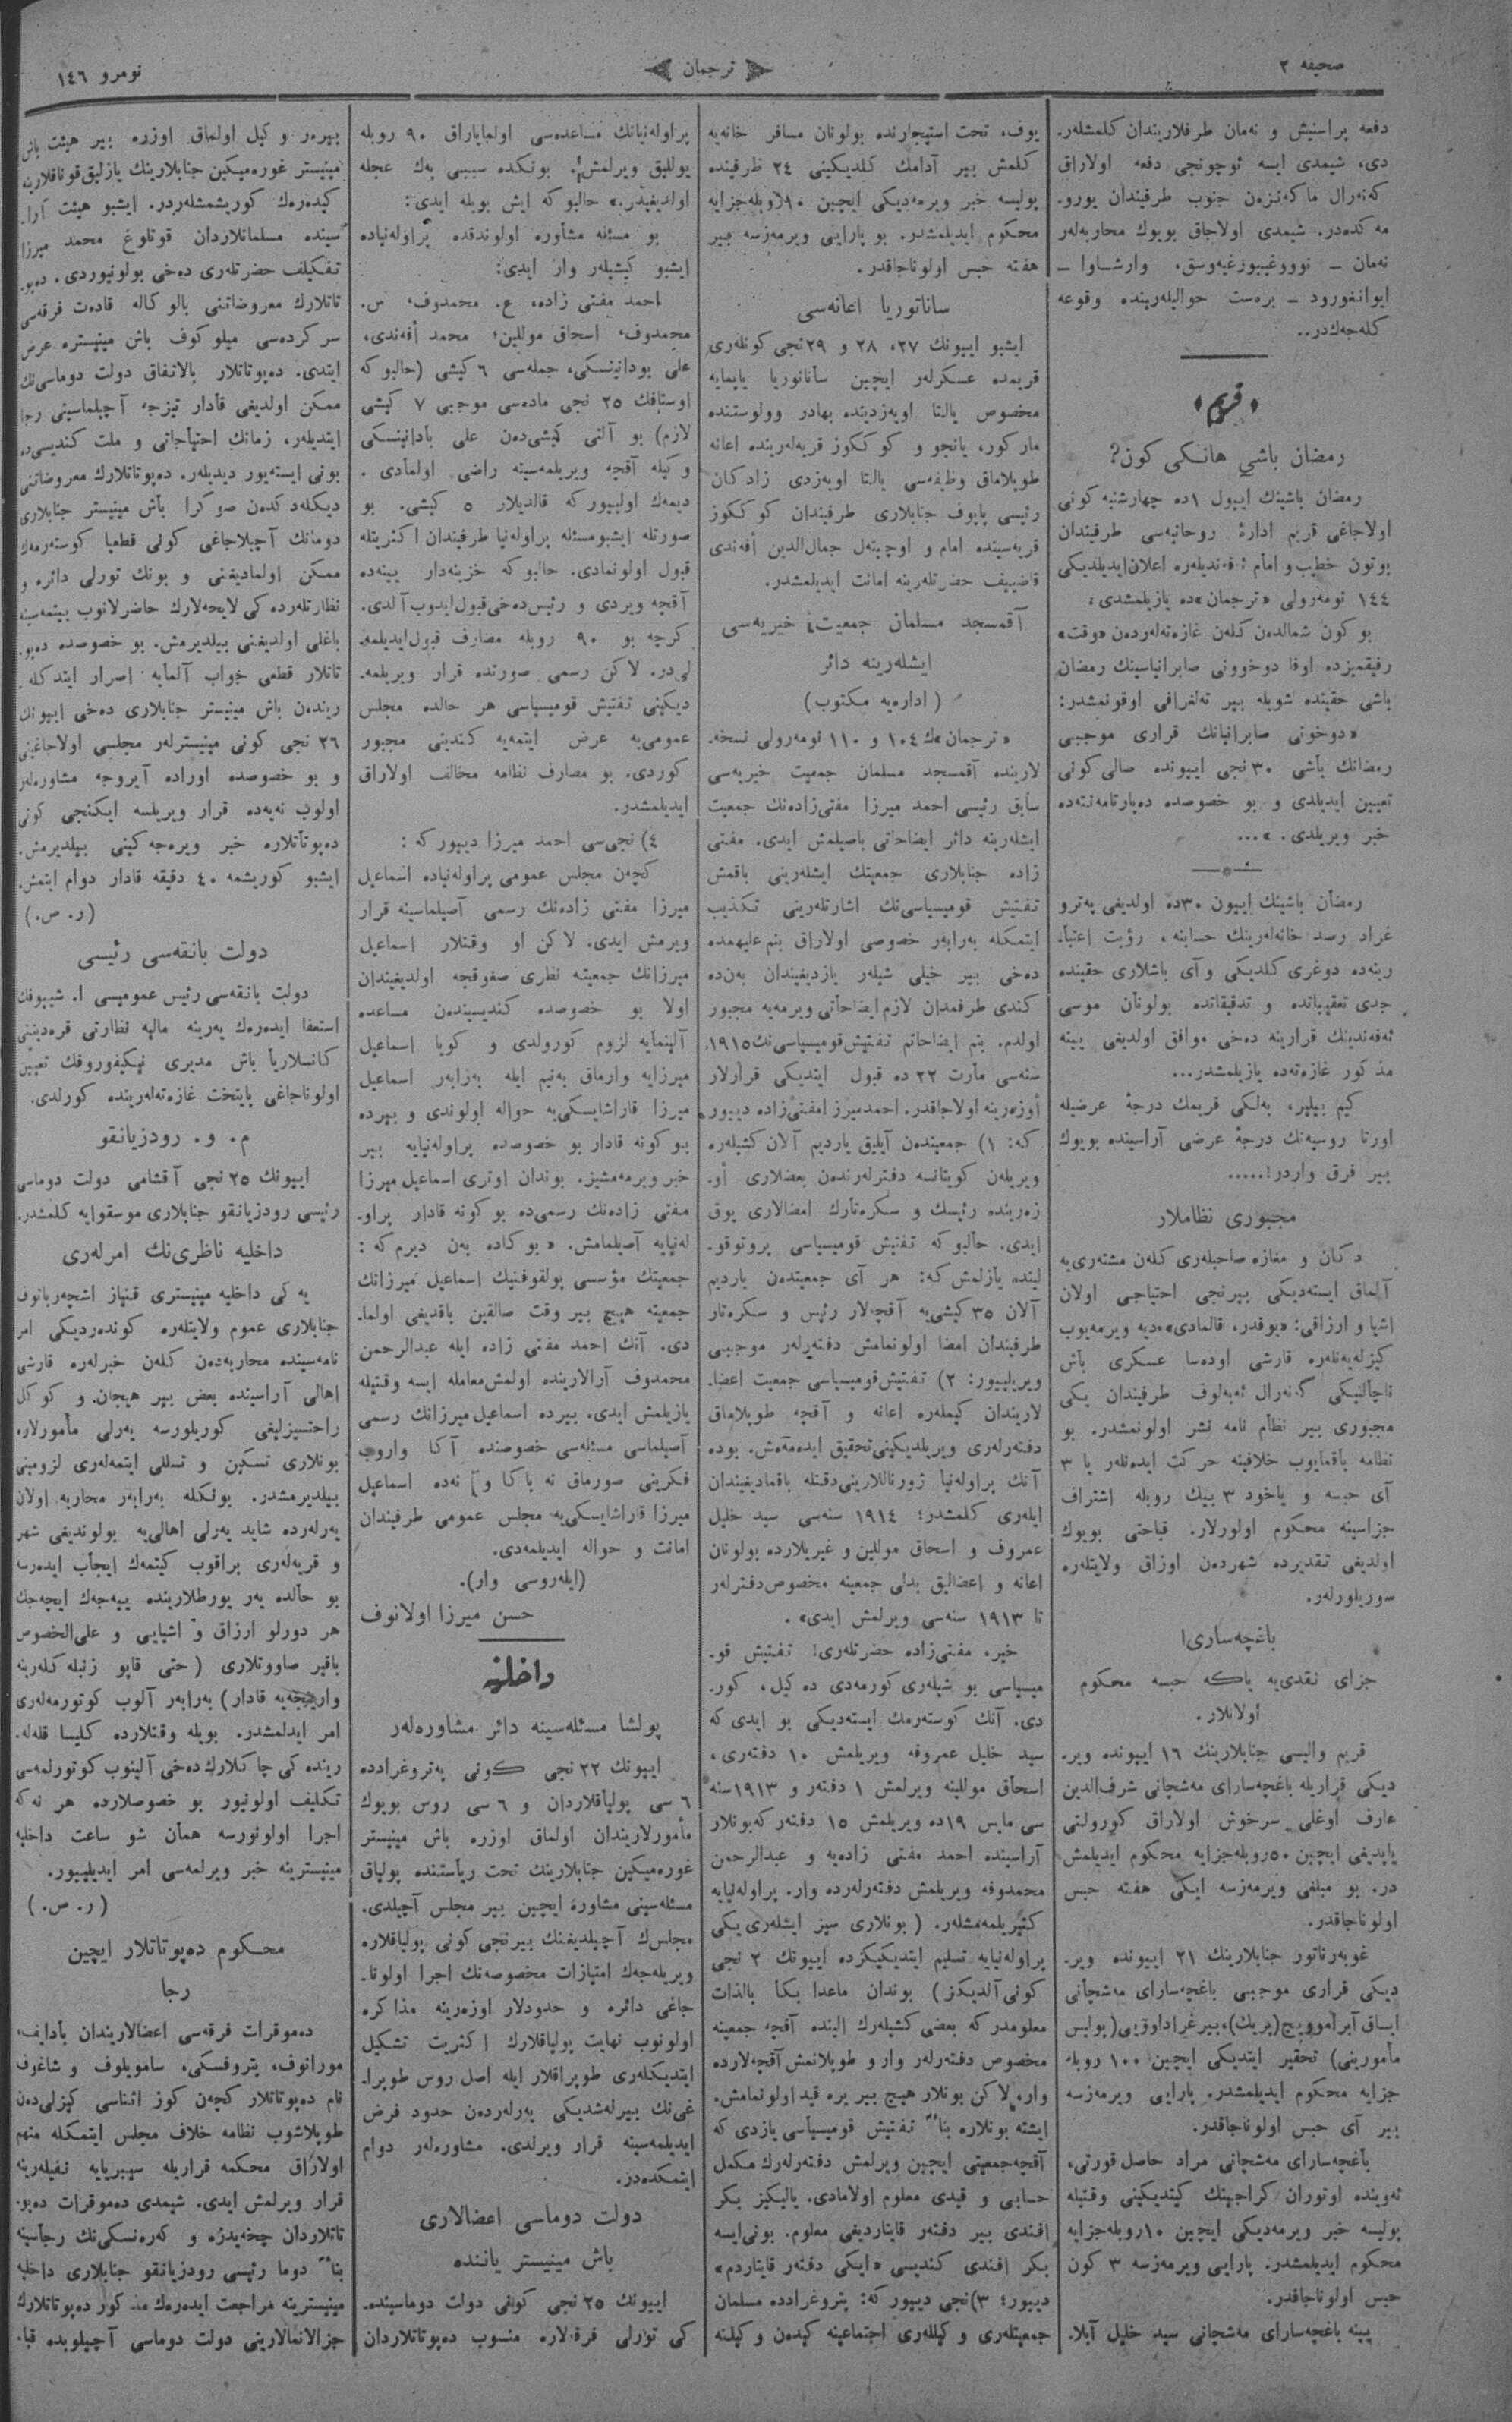 صحیفه ٢
ترجمان
نومرو ١٤٦
دفعه پراسنیش و نه‌مان طرفلاریندان كلمشلر-
دی، شیمدی ایسه ئوچونجی دفعه اولاراق
كه‌نه‌رال ماكه‌نزه‌ن جنوب طرفیندان یورو-
مه‌كده‌در. شیمدی اولاجاق بویوك محاربه‌لر
نه‌مان ـ نووو‌غیورغیه‌وسق، وارشاوا ـ
ایوانغورود ـ بره‌ست حوالیله‌رینده وقوعه
كله‌جه‌كدر..
قریم
رمضان باشی هانكی كون؟
رمضان باشینك اییول ١ده چهارشنبه كونی
اولاجاغی قریم ادارهٔ روحانیه‌سی طرفیندان
بوتون خطیب و امام افندیله‌ره اعلان ایدیلدیكی
١٤٤ نومه‌رولی «ترجمان»ده یازیلمشدی؛
بو كون شمالدن كلن غازه‌ته‌لردن «وقت»
رفیقمیزده اوفا دوخوونی صابرانیاسینك رمضان
باشی حقینده شویله بیر ته‌لغرافی اوقونمشدر:
«دوخونی صابرانیانك قراری موجبی
رمضانك باشی ٣٠نجی اییونده صالی كونی
تعیین ایدیلدی و بو خصوصده ده‌پارتامه‌نته‌ده
خبر ویریلدی.»...
رمضان باشینك اییون ٣٠ده اولدیغی په‌ترو
غراد رصد خانه‌له‌رینك حسابنه، رؤیت اعتبا-
رینه‌ده دوغری كلدیكی و آی باشلاری حقینده
جدی تعقیباتده و تدقیقاتده بولونان موسی
ئه‌فه‌ندینك قرارینه ده‌خی موافق اولدیغی یینه
مذكور غازه‌ته‌ده یازیلمشدر...
كیم بیلیر، به‌لكی قریمك درجهٔ عرضیله
اورتا روسیه‌نك درجهٔ عرضی آراسینده بویوك
بیر فرق واردر!.....
مجبوری نظاملار
دكان و مغازه صاحبله‌ری كلن مشته‌ری‌یه
آلماق ایسته‌دیكی بیرنجی احتیاجی اولان
اشیا و ارزاقی: «یوقدر، قالمادی» دیه ویرمه‌یوب
كیزله‌یه‌نله‌ره قارشی اوده‌سا عسكری باش
ناچالنیكی كه‌نه‌رال ئه‌به‌لوف طرفیندان یكی
مجبوری بیر نظام نامه نشر اولونمشدر. بو
نظامه باقمایوب خلافینه حركت ایده‌نله‌ر یا ٣
آی حبسه و یاخود ٣ بیك روبله اشتراف
جزاسینه محكوم اولورلار. قباحتی بویوك
اولدیغی تقدیرده شهردن اوزاق ولایتله‌ره
سوریلورله‌ر.
باغچه‌سارای
جزای نقدی‌یه یاكه حبسه محكوم
اولانلار.
قریم والیسی جنابلارینك ١٦ اییونده ویر-
دیكی قراریله باغچه‌سارای مه‌شچانی شرف‌الدین
عارف اوغلی سرخوش اولاراق كورولتی
یاپدیغی ایچین ٥٠روبله‌جزایه محكوم ایدیلمش
در. بو مبلغی ویرمه‌زسه ایكی هفته حبس
اولوناجاقدر.
غوبه‌رناتور جنابلارینك ٢١ اییونده ویر-
دیكی قراری موجبی باغچه‌سارای مه‌شچانی
ایساق آبراموویچ (پریك)، بیر غراداووی‌یی (پولیس
مأمورینی) تحقیر ایتدیكی ایچین ١٠٠ روبله
جزایه محكوم ایدیلمشدر. پارایی ویرمه‌زسه
بیر آی حبس اولوناجاقدر.
باغچه‌سارای مه‌شچانی مراد حاصل قورتی،
ئه‌وینده اوتوران كراجینك كیتدیكینی وقتیله
پولیسه خبر ویرمه‌دیكی ایچین ١٠روبله‌جزایه
محكوم ایدیلمشدر. پارایی ویرمه‌زسه ٣ كون
حبس اولوناجاقدر.
یینه باغچه‌سارای مه‌شچانی سید خلیل آبلا-
یوف، تحت استیجارنده بولونان مسافر خانه‌یه
كلمش بیر آدامك كلدیكینی ٢٤ ظرفینده
پولیسه خبر ویرمه‌دیكی ایچین ١٠روبله‌جزایه
محكوم ایدیلمشدر. بو پارایی ویرمه‌زسه بیر
هفته حبس اولوناجاقدر.
ساناتوریا اعانه‌سی
ایشبو اییونك ٢٧، ٢٨ و ٢٩نجی كونله‌ری
قریمده عسكرله‌ر ایچین ساناتوریا یاپمایه
مخصوص یالتا اویه‌زدینده بهادر وولوستنده
ماركور، یانجو و كوككوز قریه‌له‌رینده اعانه
طوپلاماق وظیفه‌سی یالتا اویه‌زدی زادكان
رئیسی پاپوف جنابلاری طرفیندان كوككوز
قریه‌سینده امام و اوچیته‌ل جمال‌الدین افه‌ندی
قاضییف حضرتله‌رینه امانت ایدیلمشدر.
آقمسجد مسلمان جمعیت خیریه‌سی
ایشله‌رینه دائر
(اداره‌یه مكتوب)
«ترجمان»ك ١٠٤ و ١١٠ نومه‌رولی نسخه-
لارینده آقمسجد مسلمان جمعیت خیریه‌سی
سابق رئیسی احمد میرزا مفتی‌زاده‌نك جمعیت
ایشله‌رینه دائر ایضاحاتی باصیلمش ایدی. مفتی
زاده جنابلاری جمعیتك ایشله‌رینی باقمش
تفتیش قومیسیاسی‌نك اشارتله‌رینی تكذیب
ایتمكله به‌رابه‌ر خصوصی اولاراق بنم علیهمده
ده‌خی بیر خیلی شیلر یازدیغیندان به‌ن‌ده
كندی طرفمدان لازم ایضاحاتی ویرمه‌یه مجبور
اولدم. بنم ایضاحاتم تفتیش‌قومیسیاسی‌نك ١٩١٥
سنه‌سی مارت ٢٢ ده قبول ایتدیكی قرارلار
اوزه‌رینه اولاجاقدر. احمدمیرزا مفتی‌زاده دییور
كه: ١) جمعیتدن آیلیق یاردیم آلان كشیله‌ره
ویریلن كویتانسه دفترله‌رندن بعضلاری او-
زه‌رینده رئیسك و سكره‌تارك امضالاری یوق
ایدی. حالبوكه تفتیش قومیسیاسی پروتوقو-
لینده یازلمش‌كه: هر آی جمعیتدن یاردیم
آلان ٣٥ كیشی‌یه آقچه‌لار رئیس و سكره‌تار
طرفیندان امضا اولونمامش دفته‌رله‌ر موجبی
ویریلییور: ٢) تفتیش‌قومیسیاسی جمعیت اعضا-
لاریندان كیمله‌ره اعانه و آقچه طوپلاماق
دفته‌رله‌ری ویریلدیكینی‌تحقیق ایده‌مه‌مش. بوده
آنك پراوله‌نیا ژورناللارینی‌دقتله باقمادیغیندان
ایله‌ری كلمشدر؛ ١٩١٤ سنه‌سی سید خلیل
عمروف و اسحاق موللین و غیریلارده بولونان
اعانه و اعضالیق بدلی جمعینه مخصوص‌دفترله‌ر
تا ١٩١٣ سنه‌سی ویرلمش ایدی».
خیر، مفتی‌زاده حضرتله‌ری! تفتیش قو-
میسیاسی بو شیله‌ری كورمه‌دی ده‌كیل، كور-
دی. آنك كوسته‌رمك ایسته‌دیكی بو ایدی كه
سید خلیل عمروفه ویریلمش ١٠ دفته‌ری،
اسحاق موللینه ویرلمش ١ دفته‌ر و ١٩١٣سنه
سی مایس ١٩ده ویریلمش ١٥ دفته‌ر كه‌بونلار
آراسینده احمد مفتی زاده‌یه و عبدالرحمن
محمدوفه ویریلمش دفته‌رله‌رده وار. پراوله‌نیایه
كتیریلمه‌مشلر. (بونلاری سیز ایشله‌ری‌یكی
پراوله‌نیایه تسلیم ایتدیكیكزده اییونك ٢ نجی
كونی آلدیكز) بوندان ماعدا بكا بالذات
معلومدر كه بعضی كشیله‌رك الینده آقچه جمعینه
مخصوص دفته‌رله‌ر وار و طوپلانمش آقچه‌لارده
وار، لاكن بونلار هیچ بیر یره قید اولونمامش.
ایشته بونلاره بناءً تفتیش قومیسیاسی یازدی كه
آقچه‌جمعیتی ایچین ویرلمش دفته‌رله‌رك مكمل
حسابی و قیدی معلوم اولامادی. یالیكیز بكر
افندی بیر دفتر قایتاردیغی معلوم. بونی‌ایسه
بكر افندی كندیسی «ایكی دفته‌ر قایتاردم»
دییور؛ ٣)نجی دییور كه: پتروغرادده مسلمان
جمعیتله‌ری و كیلله‌ری اجتماعینه كیدن وكیلنه
پراوله‌نیانك مساعده‌سی اولمایاراق ٩٠ روبله
یوللیق ویرلمش؛ بونكده سببی په‌ك عجله
اولدیغیدر.» حالبو كه ایش بویله ایدی:
بو مسئله مشاوره اولوندقده پراوله‌نیاده
ایشبو كیشیله‌ر وار ایدی:
احمد مفتی زاده، ع. محمدوف، س.
محمدوف، اسحاق موللین، محمد أفه‌ندی،
علی بودانینسكی، جمله‌سی ٦ كیشی (حالبو كه
اوستافك ٢٥ نجی ماده‌سی موجبی ٧ كیشی
لازم) بو آلتی كیشی‌دن علی بادانینسكی
وكیله آقچه ویریلمه‌سینه راضی اولمادی.
دیمه‌ك اولییور كه قالدیلار ٥ كیشی. بو
صورتله ایشبومسئله پراوله‌نیا طرفیندان اكثریتله
قبول اولونمادی. حالبو كه خزینه‌دار یینه‌ده
آقچه ویردی و رئیس‌ده‌خی‌قبول‌ایدوب آلدی.
كرچه بو ٩٠ روبله مصارف قبول‌ایدیلمه-
لی‌در. لاكن رسمی صورتده قرار ویریلمه-
دیكینی تفتیش قومیسیاسی هر حالده مجلس
عمومی‌یه عرض ایتمه‌یه كندینی مجبور
كوردی. بو مصارف نظامه مخالف اولاراق
ایدیلمشدر.
٤) نجی‌سی احمد میرزا دییور كه:
كچن مجلس عمومی پراوله‌نیاده اسماعیل
میرزا مفتی زاده‌نك رسمی آصیلماسینه قرار
ویرمش ایدی. لاكن او وقتلار اسماعیل
میرزانك جمعیته نظری صغوقجه اولدیغیندان
اولا بو خصوصده كندیسیندن مساعده
آلینمایه لزوم كورولدی و كویا اسماعیل
میرزایه وارماق به‌نیم ایله به‌رابه‌ر اسماعیل
میرزا قاراشایسكی‌یه حواله اولوندی و بیرده
بو كونه قادار بو خصوصده پراوله‌نیایه بیر
خبر ویرمه‌مشیز. بوندان اوتری اسماعیل میرزا
مفتی زاده‌نك رسمی‌ده بو كونه قادار پراو-
له‌نیایه آصیلمامش. «بوكاده به‌ن دیرم كه:
جمعیتك مؤسسی پولقوفنیك اسماعیل میرزانك
جمعیته هیچ بیر وقت صالقین باقدیغی اولما-
دی. آنك احمد مفتی زاده ایله عبدالرحمن
محمدوف آرالارینده اولمش‌معامله ایسه وقتیله
یازیلمش ایدی. بیرده اسماعیل میرزانك رسمی
آصیلماسی مسئله‌سی خصوصنده آكا واروب
فكرینی صورماق نه باكا و نه‌ده اسماعیل
میرزا قاراشایسكی‌یه مجلس عمومی طرفیندان
امانت و حواله ایدیلمه‌دی.
(ایله‌روسی وار).
حسن میرزا اولانوف
داخلیه
پولشا مسئله‌سینه دائر مشاوره‌له‌ر
اییونك ٢٢ نجی كونی په‌تروغرادده
٦ سی پولیاقلاردان و ٦ سی روس بویوك
مأمورلاریندان اولماق اوزره باش مینیستر
غوره‌میكین جنابلارینك تحت ریاستنده پولیاق
مسئله‌سینی مشاوره ایچین بیر مجلس آچیلدی.
مجلس‌ك آچیلدیغینك بیرنجی كونی پولیاقلاره
ویریله‌جه‌ك امتیازات مخصوصه‌نك اجرا اولونا-
جاغی دائره و حدودلار اوزه‌رینه مذاكره
اولونوب نهایت پولیاقلارك اكثریت تشكیل
ایتدیكله‌ری طوپراقلار ایله اصل روس طوپرا-
غی‌نك بیرله‌شدیكی یه‌رله‌ردن حدود فرض
ایدیلمه‌سینه قرار ویرلدی. مشاوره‌له‌ر دوام
ایتمكده‌در.
دولت دوماسی اعضالاری
باش مینیستر یاننده
اییونك ٢٥ نجی كونی دولت دوماسینده-
كی تورلی فرقه‌لاره منسوب ده‌پوتاتلاردان
بیره‌ر وكیل اولماق اوزره بیر هیئت باش
مینیستر غوره‌میكین جنابلارینك یازلیق‌قوناقلارینه
كیده‌رك كوریشمشله‌ردر. ایشبو هیئت آرا-
سینده مسلمانلاردان قوتلوغ محمد میرزا
تفكیلف حضرتله‌ری ده‌خی بولونیوردی. ده‌پو-
تاتلارك معروضاتنی بالوكاله قاده‌ت فرقه‌سی
سركرده‌سی میلوكوف باش مینیستره عرض
ایتدی. ده‌پوتاتلار بالاتفاق دولت دوماسی‌نك
ممكن اولدیغی قادار تیزجه آچیلماسینی رجا
ایتدیله‌ر، زمانك احتیاجاتی و ملت كندیسی‌ده
بونی ایسته‌یور دیدیله‌ر. ده‌پوتاتلارك معروضاتنی
دیكله‌دكدن صوكرا باش مینیستر جنابلاری
دومانك آچیلاجاغی كونی قطعیا كوسته‌رمه‌ك
ممكن اولمادیغنی و بونك تورلی دائره و
نظارتله‌رده‌كی لایحه‌لارك حاضرلانوب بیتمه‌سینه
باغلی اولدیغنی بیلدیرمش. بو خصوصده ده‌پو-
تاتلار قطعی جواب آلمایه اصرار ایتدكله-
ریندن باش مینیستر جنابلاری ده‌خی اییونك
٢٦ نجی كونی مینیسترله‌ر مجلسی اولاجاغینی
و بو خصوصده اوراده آیروجه مشاوره‌له‌ر
اولوب نه‌یه‌ده قرار ویریلسه ایكنجی كونی
ده‌پوتاتلاره خبر ویره‌جه‌كینی بیلدیرمش.
ایشبو كوریشمه ٤٠ دقیقه قادار دوام ایتمش.
(ر. ص.)
دولت بانقه‌سی رئیسی
دولت بانقه‌سی رئیس عمومیسی ا. شیپوفك
استعفا ایده‌رك یه‌رینه مالیه نظارتی قره‌دیتنی
كانسلاریا باش مدیری نیكیفوروفك تعیین
اولوناجاغی پایتخت غازه‌ته‌له‌رینده كورلدی.
م. و. رودزیانقو
اییونك ٢٥ نجی آقشامی دولت دوماسی
رئیسی رودزیانقو جنابلاری موسقوایه كلمشدر.
داخلیه ناظری‌نك امرله‌ری
یه‌كی داخلیه مینیستری قنیاز اشچه‌رباتوف
جنابلاری عموم ولایتله‌ره كونده‌ردیكی امر
نامه‌سینده محاربه‌دن كلن خبرله‌ره قارشی
اهالی آراسینده بعض بیر هیجان و كوكل
راحتسیزلیغی كوریلورسه یه‌رلی مأمورلاره
بونلاری تسكین و تسللی ایتمه‌له‌ری لزومینی
بیلدیرمشدر. بونكله به‌رابه‌ر محاربه اولان
یه‌رله‌رده شاید یه‌رلی اهالی‌یه بولوندیغی شهر
و قریه‌له‌ری براقوب كیتمه‌ك ایجاب ایده‌رسه
بو حالده یه‌ر یورطلارینده ییه‌جه‌ك ایچه‌جك
هر دورلو ارزاق و اشیایی و علی‌الخصوص
باقیر صاووتلاری (حتی قاپو زنبله‌كله‌رینه
وارینجه‌یه قادار) به‌رابه‌ر آلوب كوتورمه‌له‌ری
امر ایدلمشدر. بویله وقتلارده كلیسا قله‌له-
رینده كی چاكلارك ده‌خی آلینوب كوتورلمه‌سی
تكلیف اولونیور بو خصوصلارده هر نه‌كه
اجرا اولونورسه همان شو ساعت داخلیه
مینیسترینه خبر ویرلمه‌سی امر ایدیلییور.
(ر. ص.)
محكوم ده‌پوتاتلار ایچین
رجا
ده‌موقرات فرقه‌سی اعضالاریندان بادایف،
مورانوف، پتروفسكی، سامویلوف و شاغوف
نام ده‌پوتاتلار كچن كوز اثناسی كیزلی‌دن
طوپلاشوب نظامه خلاف مجلس ایتمكله متهم
اولاراق محكمه قراریله سیبریایه نفیله‌رینه
قرار ویرلمش ایدی. شیمدی ده‌موقرات ده‌پو-
تاتلاردان چخه‌یدزه و كه‌ره‌نسكی‌نك رجاسینه
بناءً دوما رئیسی رودزیانقو جنابلاری داخلیه
مینیسترینه مراجعت ایده‌رك مذكور ده‌پوتاتلارك
جزالانمالارینی دولت دوماسی آچیلویده قبا-